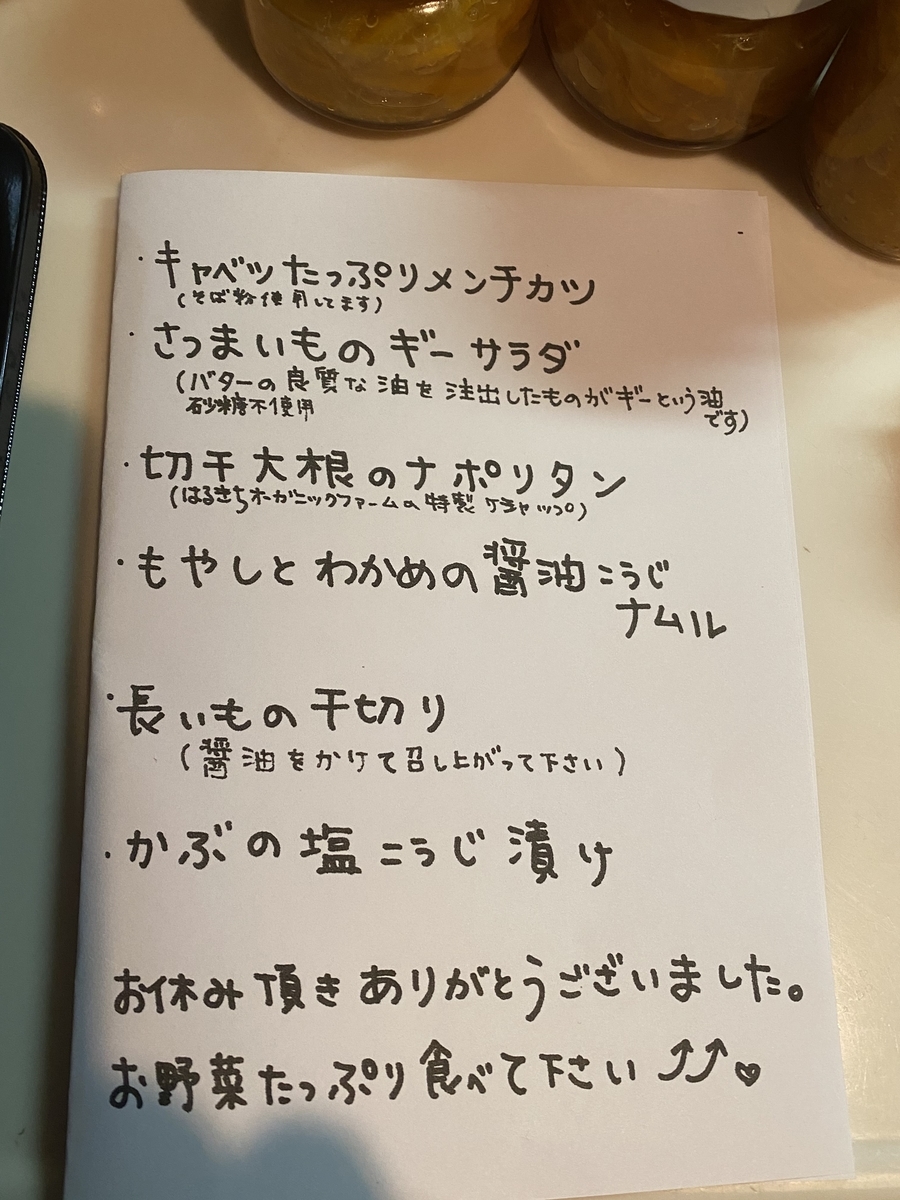 ・キャベツたっぷりメンチカツ
(そば粉使用してます)
・さつまいものギーサラダ
(バターの良質な油を注出したものがギーという油
です)
砂糖不使用
・切干大根のナポリタン
(はるきちオーガニックファームの特製ケチャップ)
・もやしとわかめの醤油こうじ
ナムル
・長いもの千切り
(醤油をかけて召し上がって下さい)
・かぶの塩こうじ漬け
お休み頂きありがとうございました。
お野菜たっぷり食べて下さい⤴⤴♡